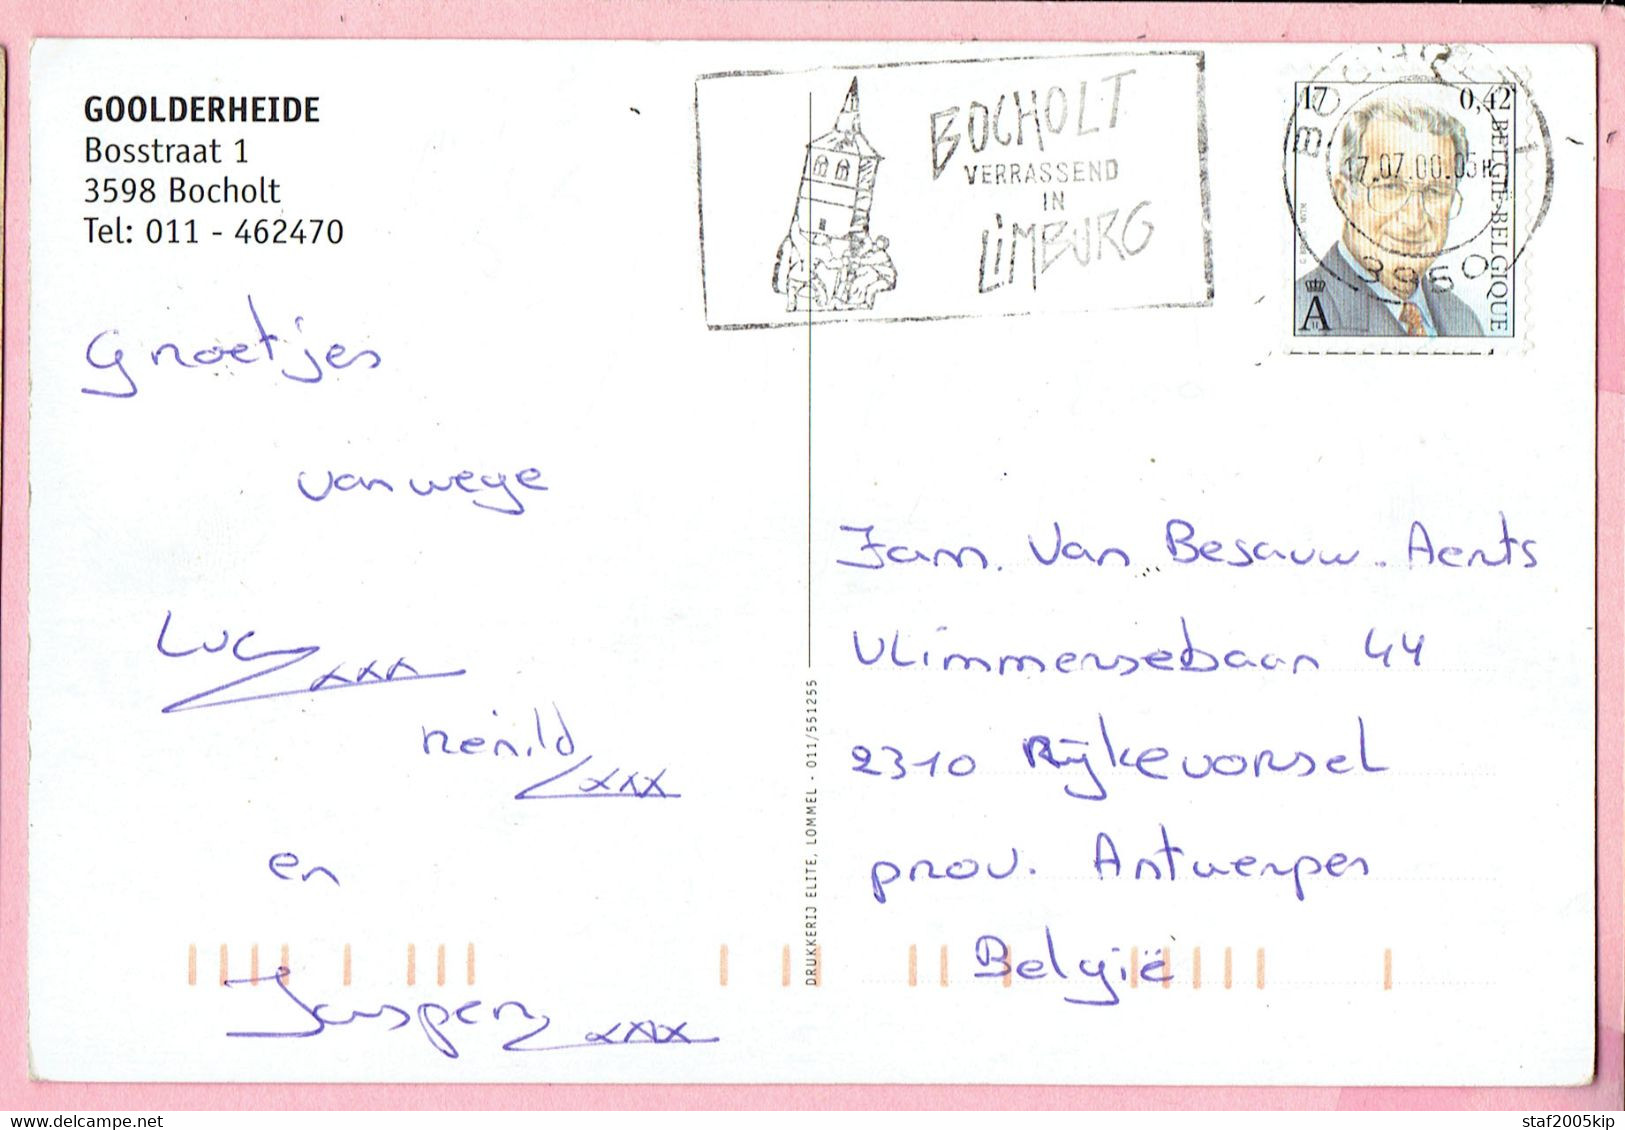 GOOLDERHEIDE
Bosstraat 1
3598 Bocholt
Tel: 011 - 462470
BOCHOLT
VERRASSEND
IN
LIMBURG
BOCHOLT 1
17.07.00.05H
3950
17 0,42
BELGIË-BELGIQUE
A
Groetjes
vanwege
Luc xxx
Reinild xxx
en
Jasper xxx
DRUKKERIJ ELITE, LOMMEL - 011/551255
Fam. Van Besauw-Aerts
Vlimmersebaan 44
2310 Rijkevorsel
prov. Antwerpen
België
www.delcampe.net
staf2005kip